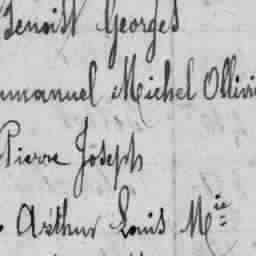 Benoist Georges
mmanuel Michel Ollivie
Pierre Joseph
Arthur Louis M^ie